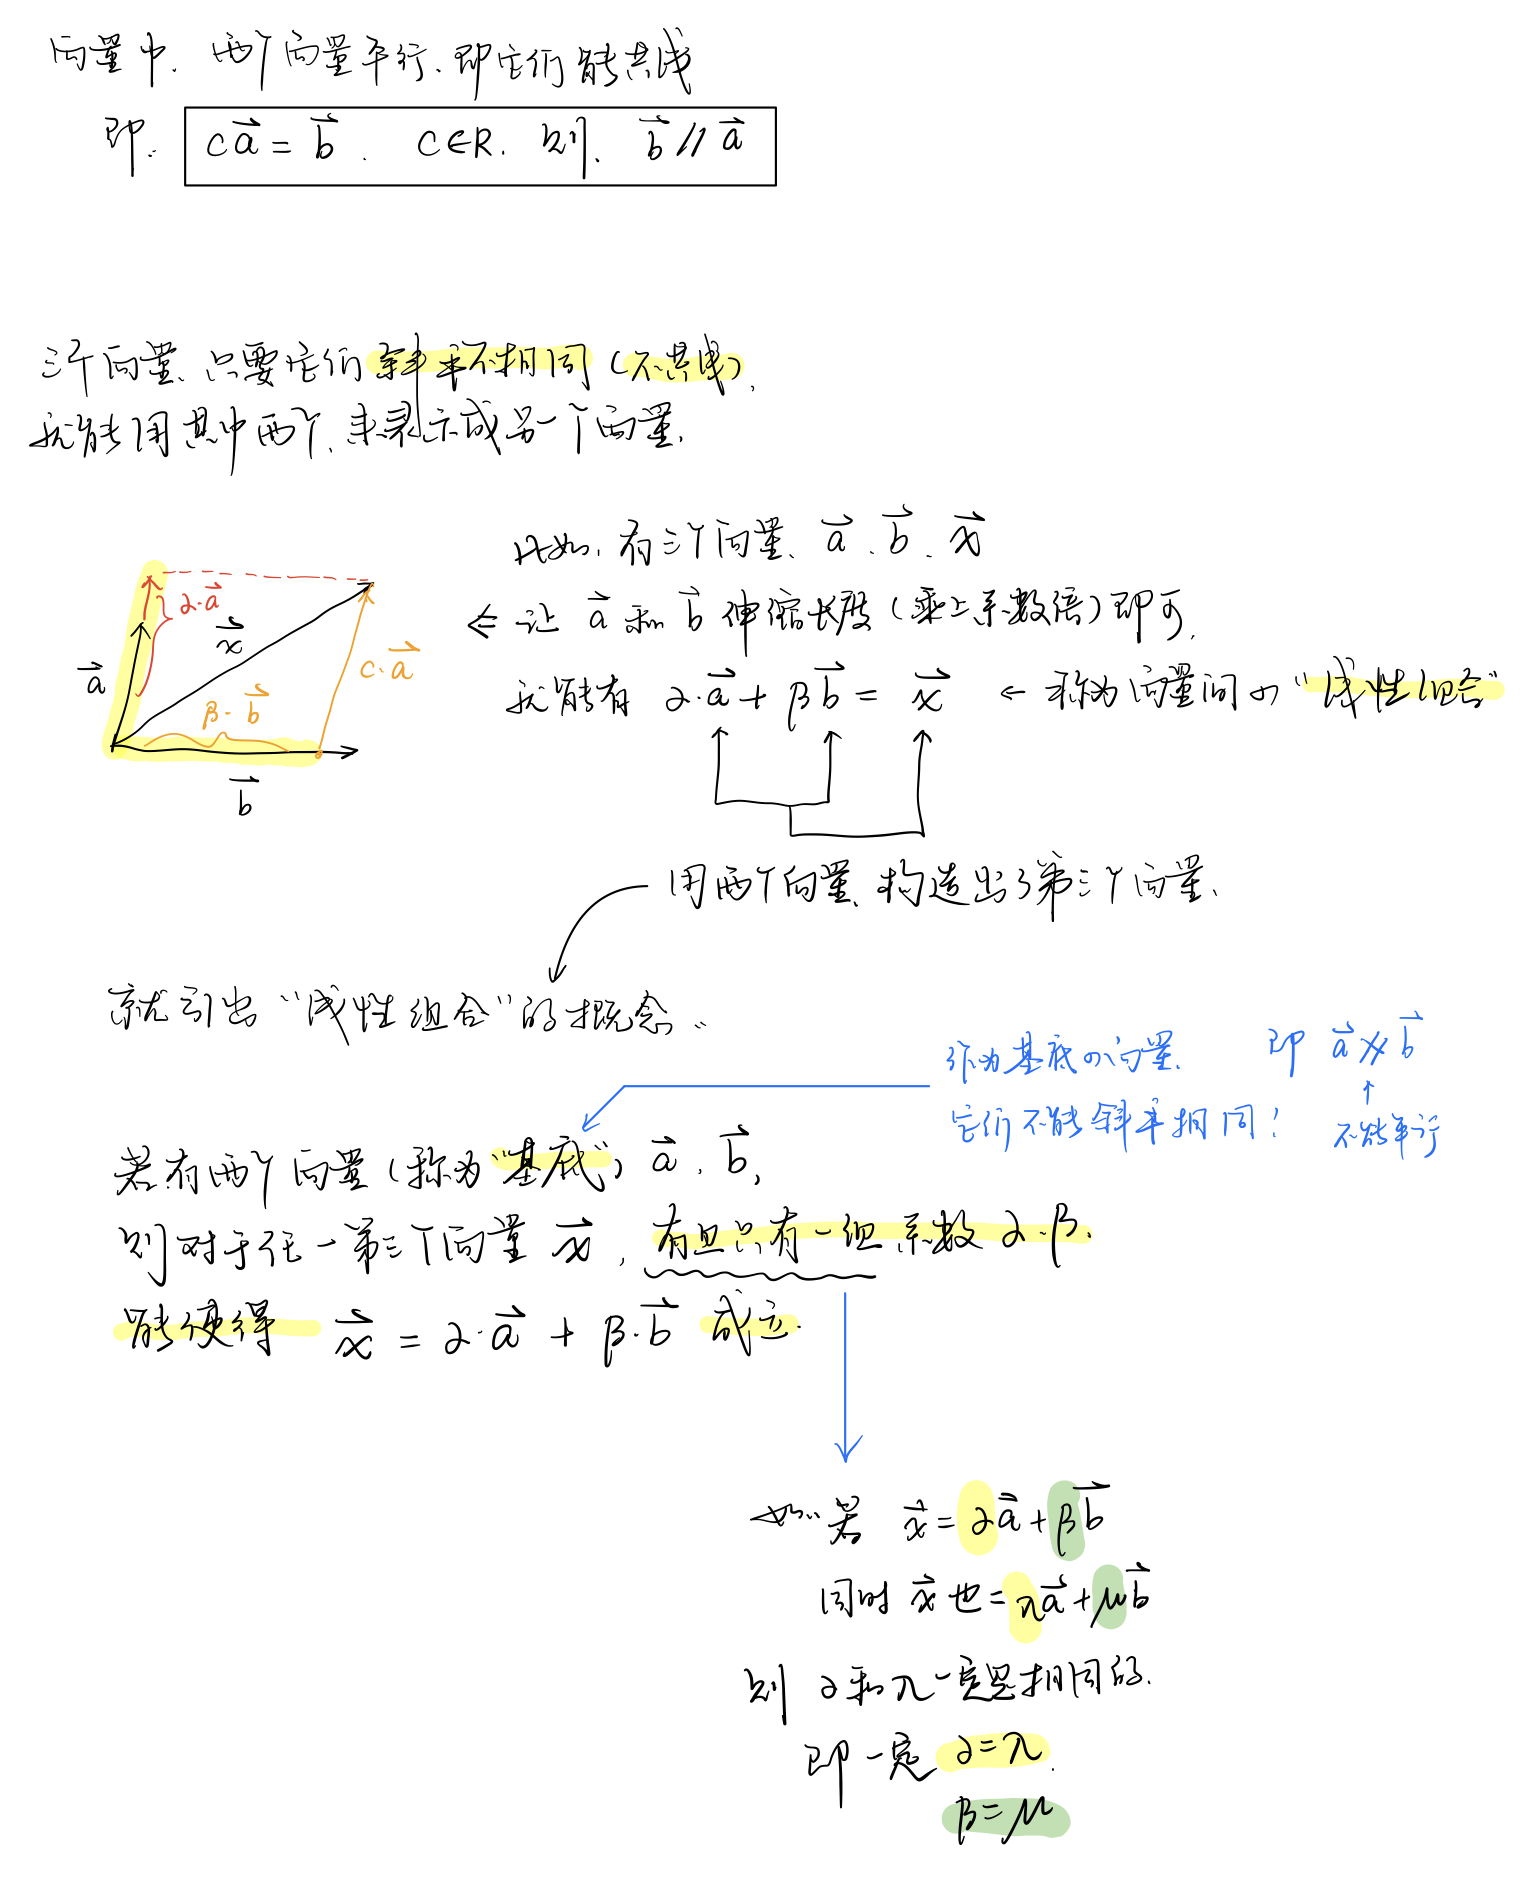 向量中. 两个向量平行. 即它们能共线
即: c a⃗ = b⃗ . c∈R. 则. b⃗ // a⃗
三个向量. 只要它们斜率不相同 (不共线),
就能用其中两个. 来表示成另一个向量.
比如, 有三个向量. a⃗ . b⃗ . x⃗
⇐ 让 a⃗ 和 b⃗ 伸缩长度 (乘上系数倍) 即可,
就能有 α·a⃗ + βb⃗ = x⃗ ← 称为向量间の "线性组合"
α·a⃗
x⃗
a⃗
c·a⃗
β·b⃗
b⃗
用两个向量, 构造出了第三个向量.
就引出 "线性组合" 的概念.
作为基底の向量. 即 a⃗ ∦ b⃗
它们不能斜率相同! ↑
不能平行
若有两个向量 (称为 "基底") a⃗ . b⃗ ,
则对于任一第三个向量 x⃗ , 有且只有一组系数 α·β.
能使得 x⃗ = α·a⃗ + β·b⃗ 成立.
如: 若 x⃗ = αa⃗ + βb⃗
同时 x⃗ 也 = λa⃗ + μb⃗
则 α和λ一定是相同的.
即一定 α=λ.
β=μ